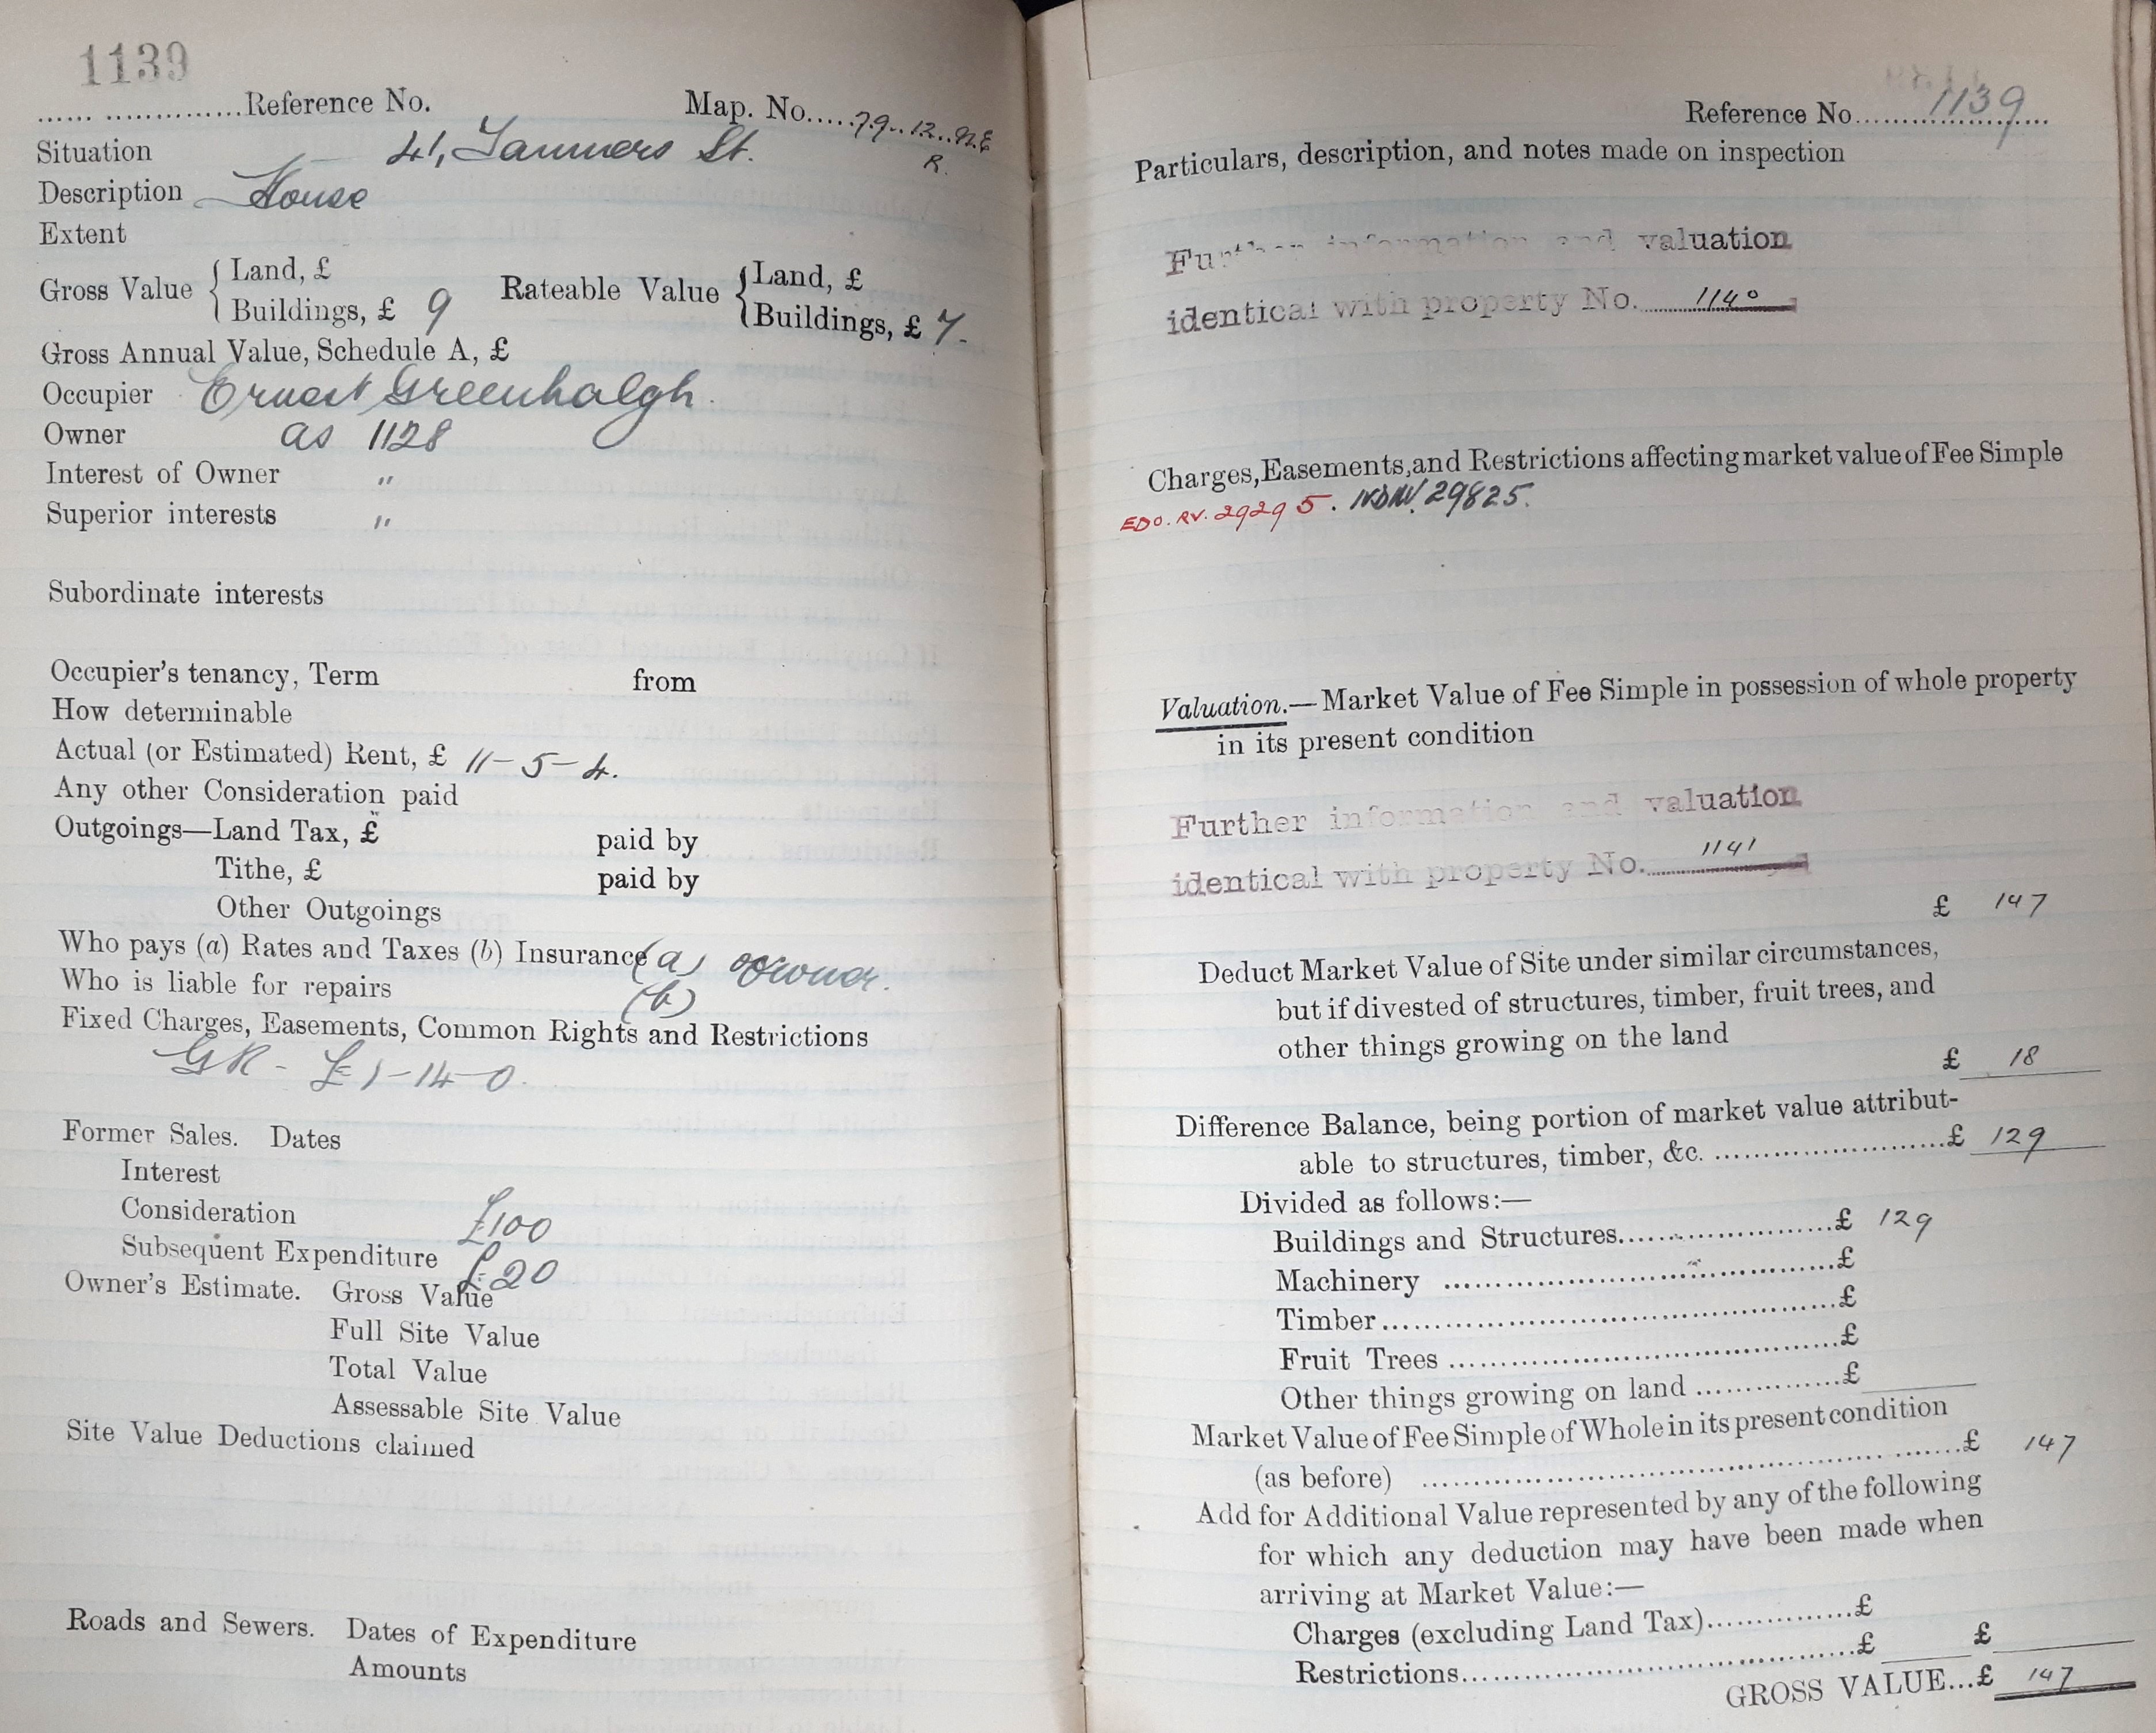 1139
Reference No. Map. No. 79.12.N.E
R.
Situation 41, Tanners St.
Description House
Extent
Gross Value { Land, £ Rateable Value { Land, £
Buildings, £ 9 Buildings, £ 7.
Gross Annual Value, Schedule A, £
Occupier Ernest Greenhalgh.
Owner as 1128
Interest of Owner "
Superior interests "
Subordinate interests
Occupier's tenancy, Term from
How determinable
Actual (or Estimated) Rent, £ 11-5-4.
Any other Consideration paid
Outgoings—Land Tax, £ paid by
Tithe, £ paid by
Other Outgoings
Who pays (a) Rates and Taxes (b) Insurance (a) owner.
Who is liable for repairs (b)
Fixed Charges, Easements, Common Rights and Restrictions
GR - £1-14-0.
Former Sales. Dates
Interest
Consideration £100
Subsequent Expenditure £20
Owner's Estimate. Gross Value
Full Site Value
Total Value
Assessable Site Value
Site Value Deductions claimed
Roads and Sewers. Dates of Expenditure
Amounts
Reference No. 1139
Particulars, description, and notes made on inspection
Further information and valuation
identical with property No. 1140
Charges, Easements, and Restrictions affecting market value of Fee Simple
EDO. RV. 29295. 29825.
Valuation.—Market Value of Fee Simple in possession of whole property
in its present condition
Further information and valuation
identical with property No. 1141
£ 147
Deduct Market Value of Site under similar circumstances,
but if divested of structures, timber, fruit trees, and
other things growing on the land
£ 18
Difference Balance, being portion of market value attribut-
able to structures, timber, &c. £ 129
Divided as follows:—
Buildings and Structures £ 129
Machinery £
Timber £
Fruit Trees £
Other things growing on land £
Market Value of Fee Simple of Whole in its present condition
(as before) £ 147
Add for Additional Value represented by any of the following
for which any deduction may have been made when
arriving at Market Value:—
Charges (excluding Land Tax) £
Restrictions £ £
GROSS VALUE...£ 147